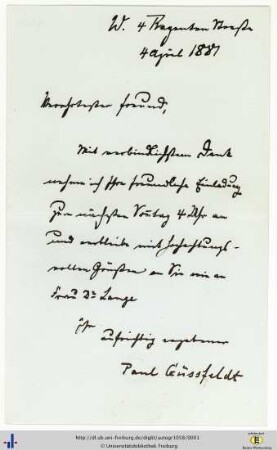 W. 4 Regenten Strasse
4 April 1881
Verehrtester Freund,
Mit verbindlichstem Dank
nehme ich Ihre freundliche Einladung
zum nächsten Sonntag 4 Uhr an
und verbleibe mit hochachtungs-
vollen Grüßen an Sie wie an
Frau Dr Lange
Ihr
aufrichtig ergebener
Paul Güssfeldt
http://dl.ub.uni-freiburg.de/diglit/autogr1058/0001
© Universitätsbibliothek Freiburg